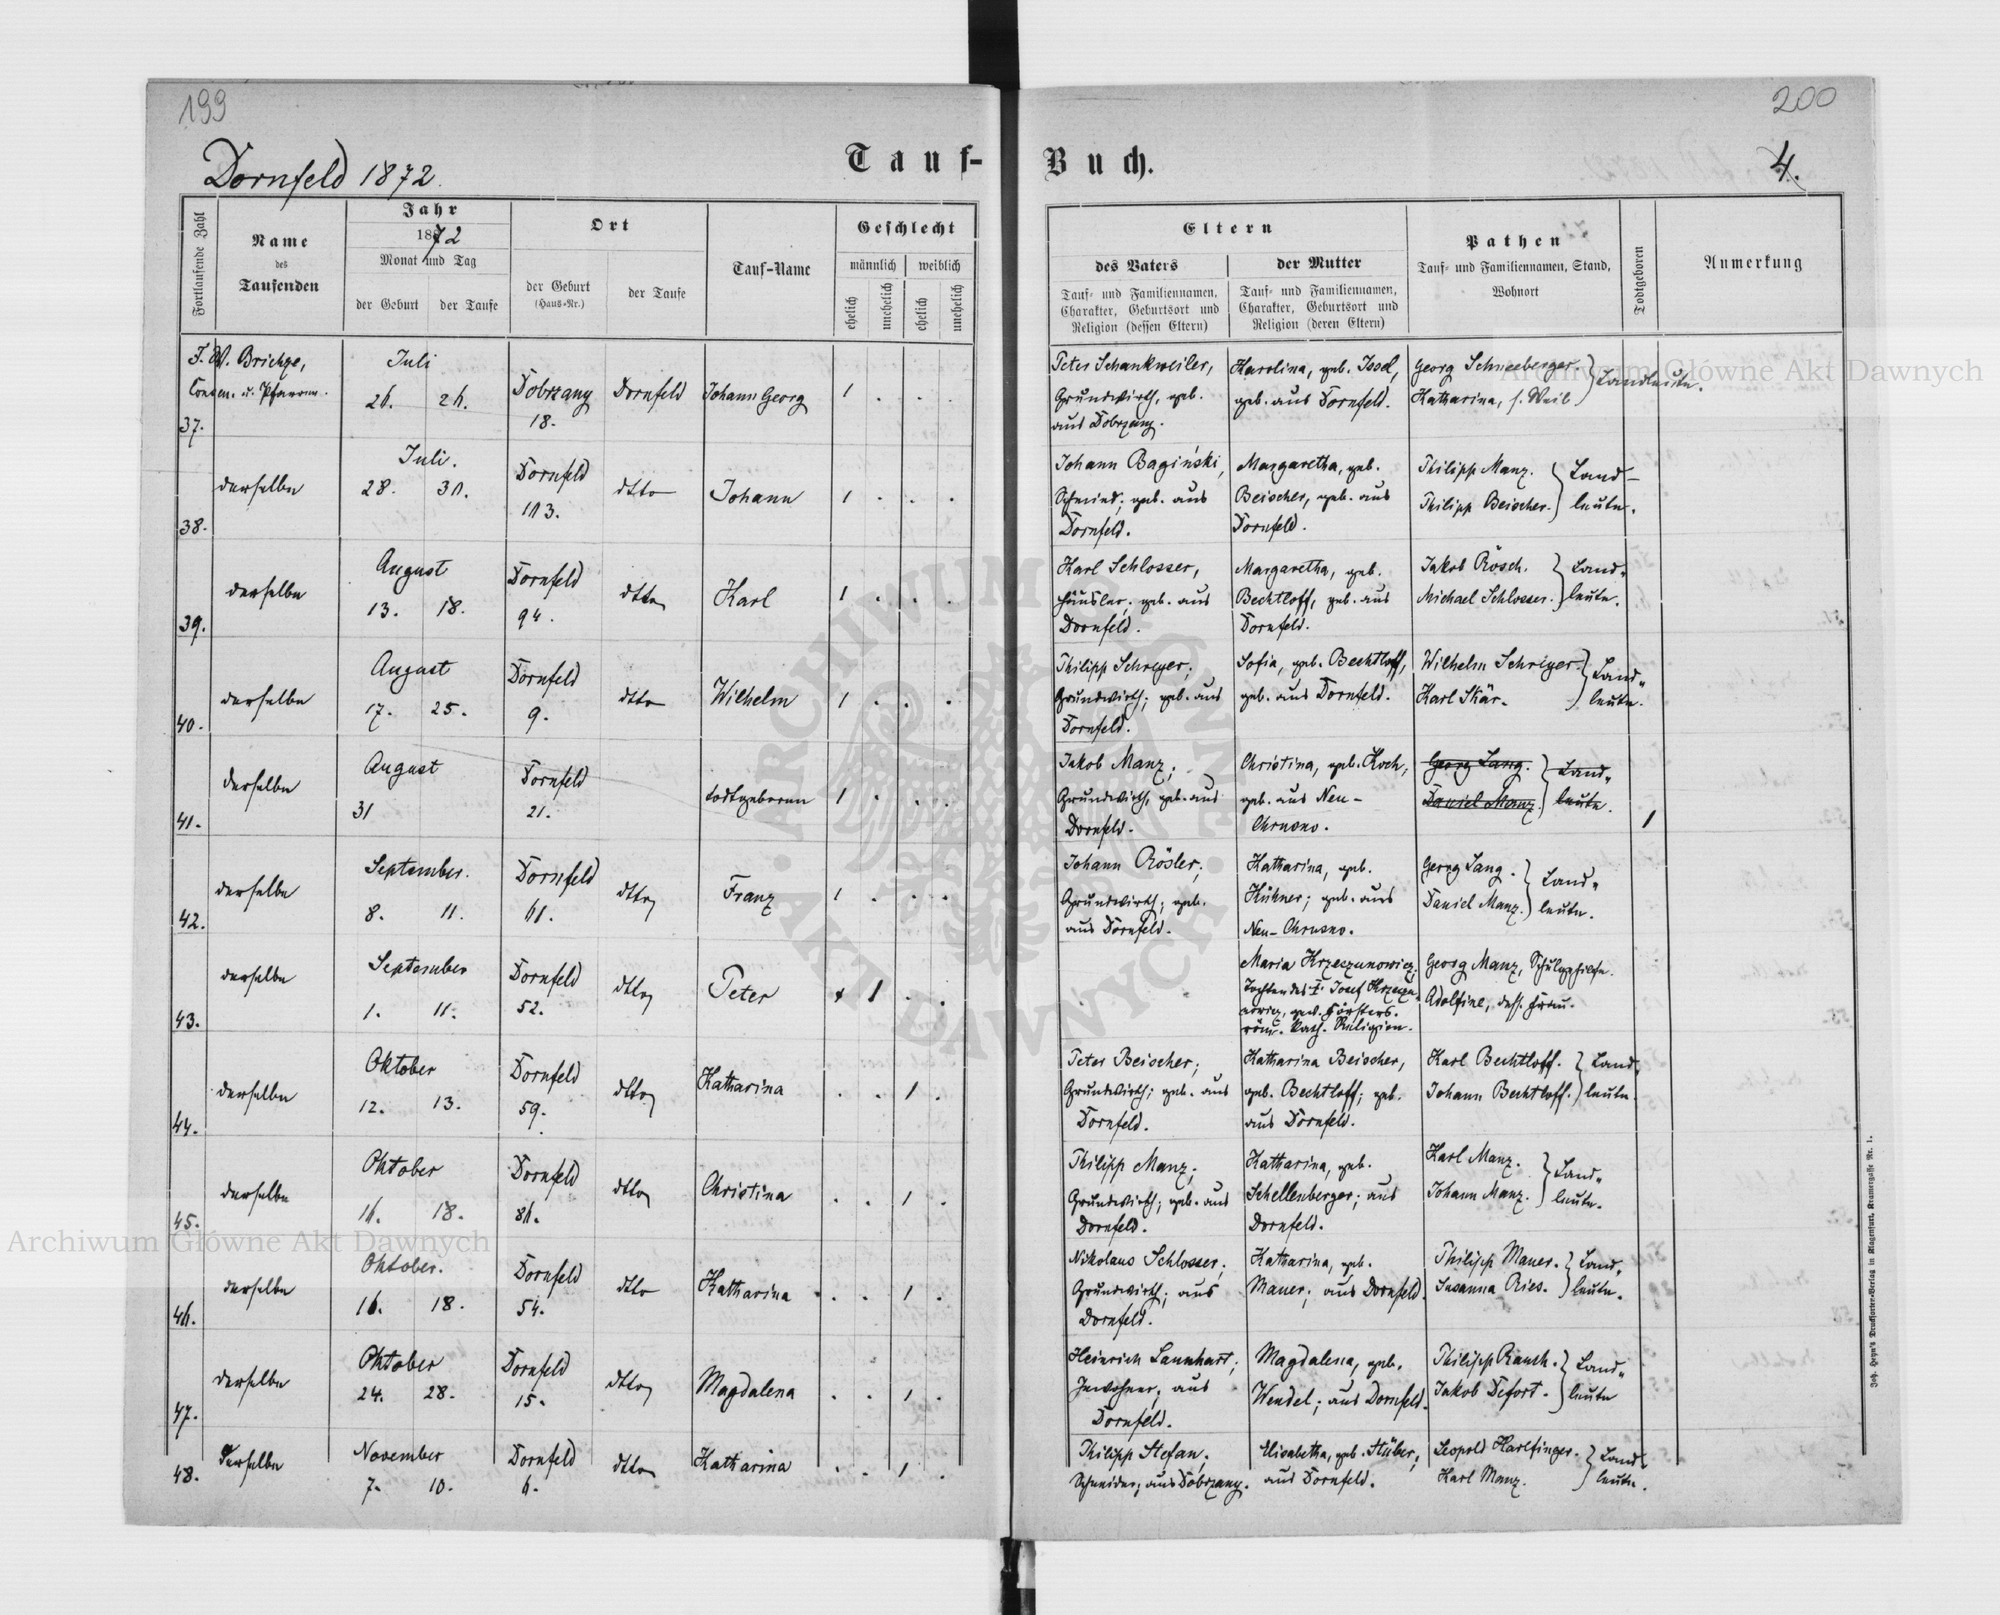 199
200
Dornfeld 1872.
Tauf-Buch.
4.
Fortlaufende Zahl
Name
des
Taufenden
Jahr
1872
Monat und Tag
der Geburt
der Taufe
Ort
der Geburt
(Haus-Nr.)
der Taufe
Tauf-Name
Geschlecht
männlich
weiblich
ehelich
unehelich
ehelich
unehelich
Eltern
des Vaters
Tauf- und Familiennamen,
Charakter, Geburtsort und
Religion (dessen Eltern)
der Mutter
Tauf- und Familiennamen,
Charakter, Geburtsort und
Religion (deren Eltern)
Pathen
Tauf- und Familiennamen, Stand,
Wohnort
Todtgeboren
Anmerkung
37.
F. W.
Juli
26. 26.
Dobrzany
18.
Dornfeld
Johann Georg
1 . . .
Peter Schankweiler,
Grundwirth, geb.
aus Dobrzany.
Karolina, geb. Issel,
geb. aus Dornfeld.
Georg Schneeberger.
Katharina, s. Weib
Landleute.
38.
derselbe
Juli.
28. 31.
Dornfeld
113.
dtto
Johann
1 . . .
Johann Bagiński,
Schmied; geb. aus
Dornfeld.
Margaretha, geb.
Beischer, geb. aus
Dornfeld.
Philipp Manz.
Philipp Beischer.
Land-
leute.
39.
derselbe
August
13. 18.
Dornfeld
94.
dtto
Karl
1 . . .
Karl Schlosser,
Häusler; geb. aus
Dornfeld.
Margaretha, geb.
Bechtloff, geb. aus
Dornfeld.
Jakob Rösch.
Michael Schlosser.
Land-
leute.
40.
derselbe
August
17. 25.
Dornfeld
9.
dtto
Wilhelm
1 . . .
Philipp Schreyer;
Grundwirth; geb. aus
Dornfeld.
Sofia, geb. Bechtloff,
geb. aus Dornfeld.
Wilhelm Schreyer.
Karl Skär.
Land-
leute.
41.
derselbe
August
31
Dornfeld
21.
todtgeboren
1 . . .
Jakob Manz;
Grundwirth, geb. aus
Dornfeld.
Christina, geb. Koch,
geb. aus Neu-
Chrusno.
Georg Lang.
Daniel Manz.
Land-
leute.
1
42.
derselbe
September.
8. 11.
Dornfeld
61.
dtto
Franz
1 . . .
Johann Rösler;
Grundwirth; geb.
aus Dornfeld.
Katharina, geb.
Hühner; geb. aus
Neu-Chrusno.
Georg Lang.
Daniel Manz.
Land-
leute.
43.
derselbe
September
1. 11.
Dornfeld
52.
dtto
Peter
1 . .
Maria Krzeczunowicz,
Tochter des † Josef Krzeczu-
nowicz, gew. Försters.
röm. kath. Religion.
Georg Manz, Schulgehilfe.
Adolfine, dess. Frau.
44.
derselbe
Oktober
12. 13.
Dornfeld
59.
dtto
Katharina
. . 1 .
Peter Beischer;
Grundwirth; geb. aus
Dornfeld.
Katharina Beischer,
geb. Bechtloff; geb.
aus Dornfeld.
Karl Bechtloff.
Johann Bechtloff.
Land-
leute.
45.
derselbe
Oktober
16. 18.
Dornfeld
86.
dtto
Christina
. . 1 .
Philipp Manz;
Grundwirth; geb. aus
Dornfeld.
Katharina, geb.
Schellenberger; aus
Dornfeld.
Karl Manz.
Johann Manz.
Land-
leute.
46.
derselbe
Oktober.
16. 18.
Dornfeld
54.
dtto
Katharina
. . 1 .
Nikolaus Schlosser;
Grundwirth; aus
Dornfeld.
Katharina, geb.
Mauer; aus Dornfeld.
Philipp Mauer.
Susanna Ries.
Land-
leute.
47.
derselbe
Oktober
24. 28.
Dornfeld
15.
dtto
Magdalena
. . 1 .
Heinrich Launhart;
Inwohner; aus
Dornfeld.
Magdalena, geb.
Wendel; aus Dornfeld.
Philipp Rauch.
Jakob Defort.
Land-
leute
48.
Derselbe
November
7. 10.
Dornfeld
6.
dtto
Katharina
. . 1 .
Philipp Stefan.
Schneider; aus Dobrzany.
Elisabetha, geb. Stüber;
aus Dornfeld.
Leopold Harlfinger.
Karl Manz.
Land-
leute.
Joh. Heyn's Drucksorten-Verlag in Klagenfurt, Kramergasse Nr. 1.
Archiwum Główne Akt Dawnych
Archiwum Główne Akt Dawnych
ARCHIWUM GŁÓWNE · AKT DAWNYCH ·